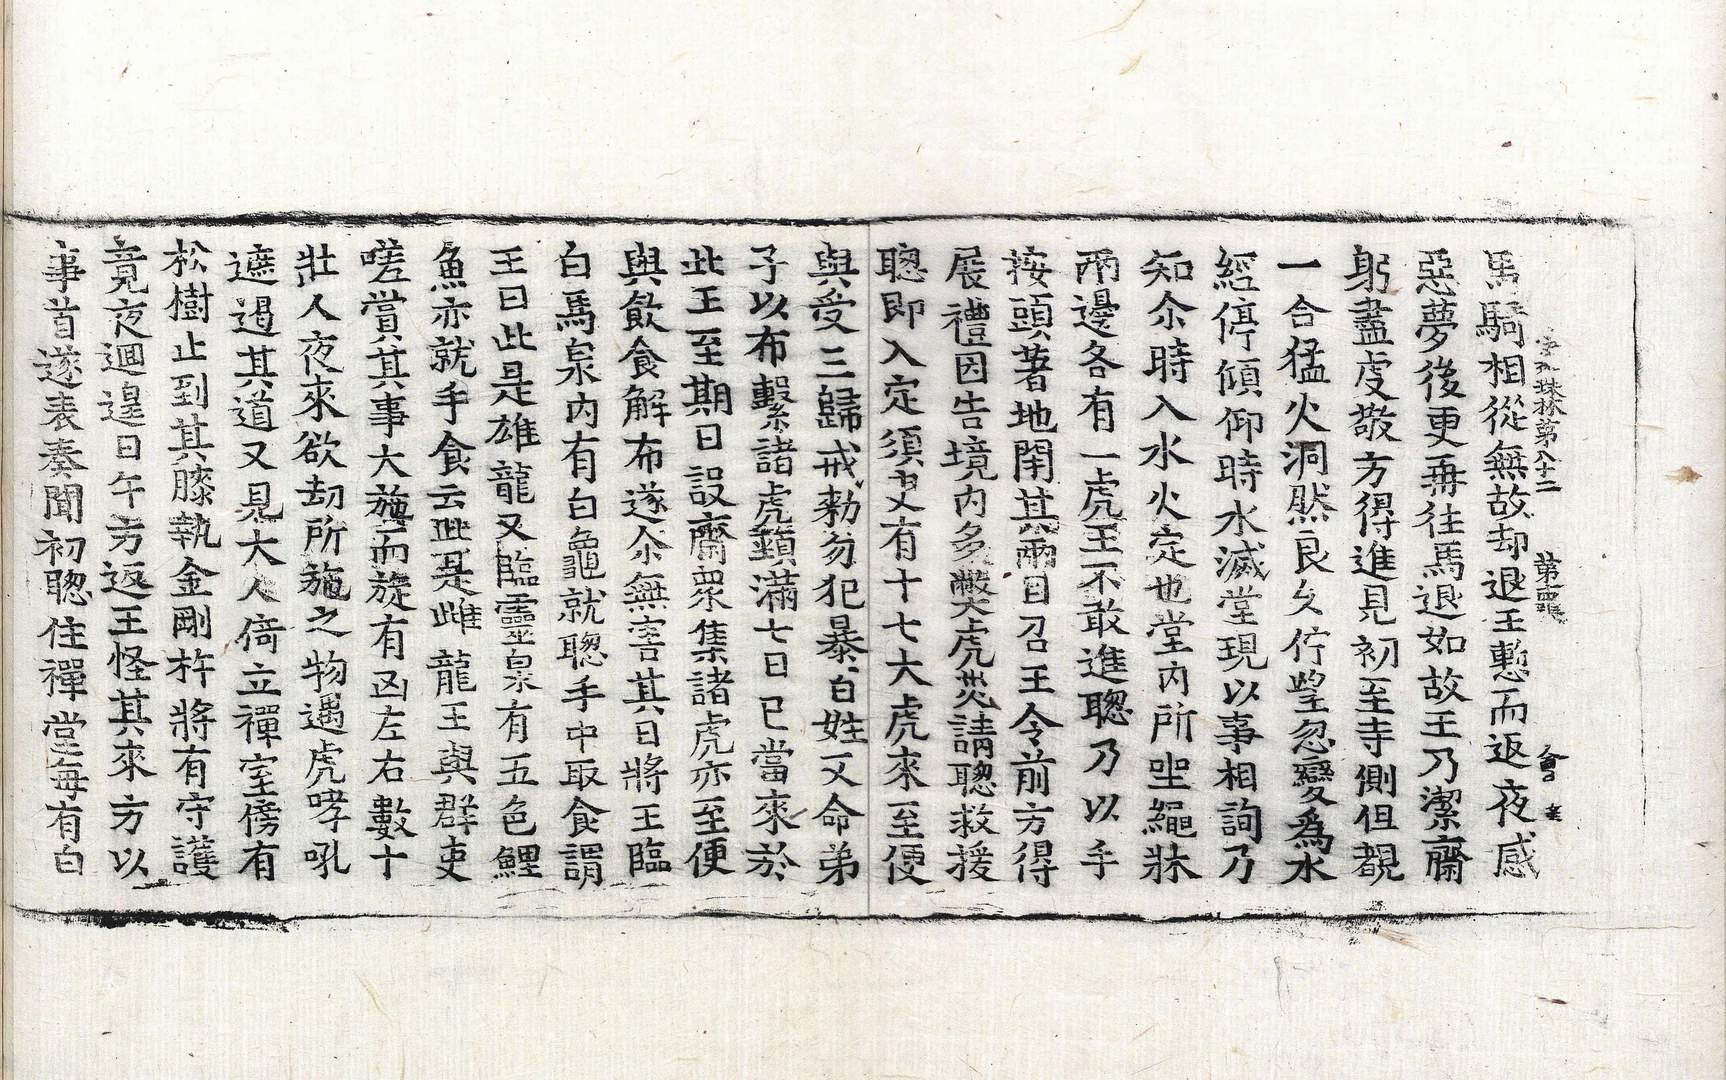 珠林第八十二 第
馬騎相從無故却退王慙而返夜感
惡夢後更再往馬退如故王乃潔齋
躬盡虔敬方得進見初至寺側但覩
一合猛火洞然良久佇望忽變爲水
經停傾仰時水滅堂現以事相詢乃
知尒時入水火定也堂內所坐繩牀
兩邊各有一虎王不敢進聰乃以手
按頭著地閉其兩目召王令前方得
展禮因告境內多弊虎灾請聰救援
聰卽入定須臾有十七大虎來至便
與受三歸戒勑勿犯暴百姓又命弟
子以布繫諸虎頸滿七日已當來於
此王至期日設齋衆集諸虎亦至便
與飮食解布遂尒無害其日將王臨
白馬泉內有白龜就聰手中取食謂
王曰此是雄龍又臨靈泉有五色鯉
魚亦就手食云此是雌龍王與群吏
嗟賞其事大施而旋有凶左右數十
壯人夜來欲劫所施之物遇虎哮吼
遮遏其道又見大人倚立禪室傍有
松樹止到其膝執金剛杵將有守護
竟夜迴遑日午方返王怪其來方以
事首遂表奏聞初聰住禪堂每有白